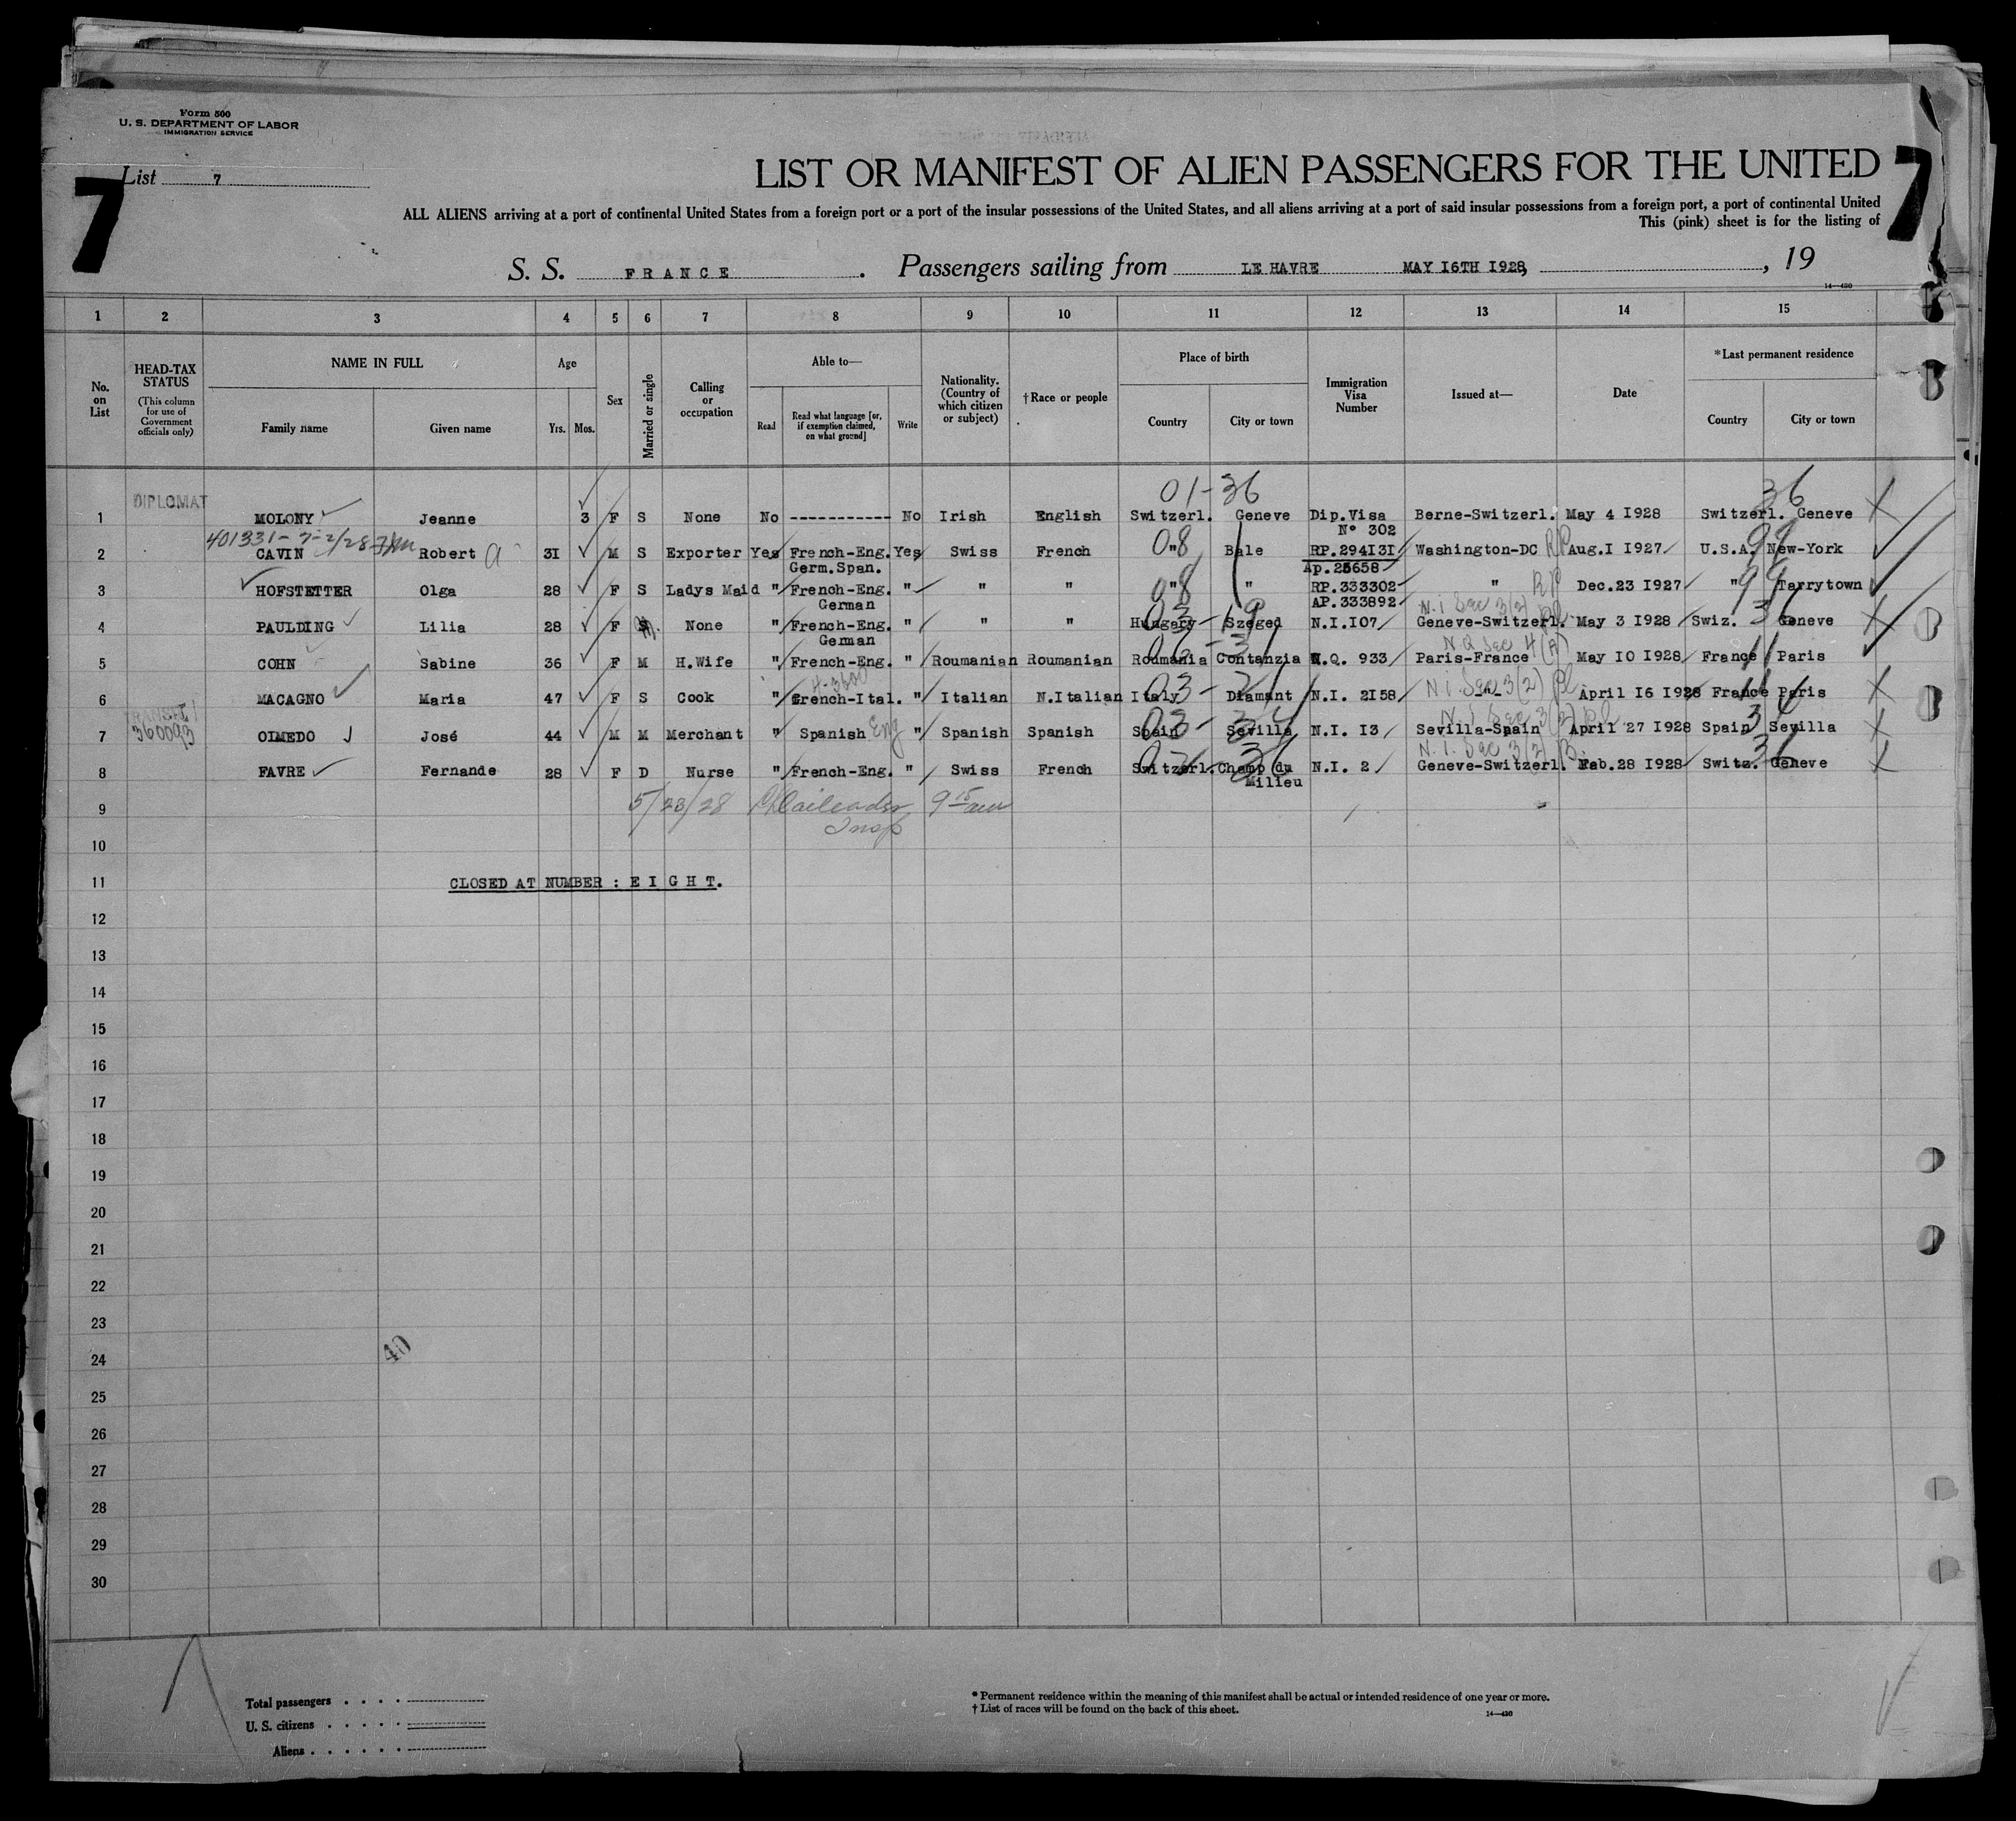 Form 500
U. S. DEPARTMENT OF LABOR
IMMIGRATION SERVICE
List 7
7
7
LIST OR MANIFEST OF ALIEN PASSENGERS FOR THE UNITED
ALL ALIENS arriving at a port of continental United States from a foreign port or a port of the insular possessions of the United States, and all aliens arriving at a port of said insular possessions from a foreign port, a port of continental United
This (pink) sheet is for the listing of
S. S. FRANCE. Passengers sailing from LE HAVRE MAY 16TH 1928, , 19
14—430
1 2 3 4 5 6 7 8 9 10 11 12 13 14 15
No. on List
HEAD-TAX STATUS (This column for use of Government officials only)
NAME IN FULL Family name Given name
Age Yrs. Mos.
Sex
Married or single
Calling or occupation
Able to— Read Read what language [or, if exemption claimed, on what ground] Write
Nationality. (Country of which citizen or subject)
†Race or people
Place of birth Country City or town
Immigration Visa Number
Issued at—
Date
*Last permanent residence Country City or town
01-36 36
DIPLOMAT
1 MOLONY Jeanne 3 F S None No ----------- No Irish English Switzerl. Geneve Dip.Visa N° 302 Berne-Switzerl. May 4 1928 Switzerl. Geneve
401331-
2 CAVIN Robert a 31 M S Exporter Yes French-Eng. Germ.Span. Yes Swiss French 08 " Bale RP.294131 Ap.25658 Washington-DC RP Aug.1 1927 U.S.A. New-York 99
3 HOFSTETTER Olga 28 F S Ladys Maid " French-Eng. German " " " 08 " " RP.333302 AP.333892 " RP Dec.23 1927 " Tarrytown 99
4 PAULDING Lilia 28 F S None " French-Eng. German " " " Hungary Szeged 03-19 N.I.107 N.I Sec 3(2) Geneve-Switzerl. May 3 1928 Swiz. Geneve 36
5 COHN Sabine 36 F M H.Wife " French-Eng. " Roumanian Roumanian Roumania Contanzia N.Q. 933 N.Q Sec 4 Paris-France May 10 1928 France Paris 11
6 MACAGNO Maria 47 F S Cook " French-Ital. " Italian N.Italian Italy Diamant 03-21 N.I. 2158 N I Sec 3(2) -"- April 16 1928 France Paris 11
TRANSIT
360093
7 OLMEDO José 44 M M Merchant " Spanish Eng " Spanish Spanish Spain Sevilla N.I. 13 N I Sec 3(2) Sevilla-Spain April 27 1928 Spain Sevilla 34
8 FAVRE Fernande 28 F D Nurse " French-Eng. " Swiss French Switzerl. Champ du Milieu N.I. 2 N. I. Sec 3(2) Geneve-Switzerl. Feb.28 1928 Switz. Geneve 36
9 5/23/28 Insp 9 15 am
10
11 CLOSED AT NUMBER : E I G H T.
12
13
14
15
16
17
18
19
20
21
22
23
24 40
25
26
27
28
29
30
Total passengers
U. S. citizens
Aliens
* Permanent residence within the meaning of this manifest shall be actual or intended residence of one year or more.
† List of races will be found on the back of this sheet.
14—430